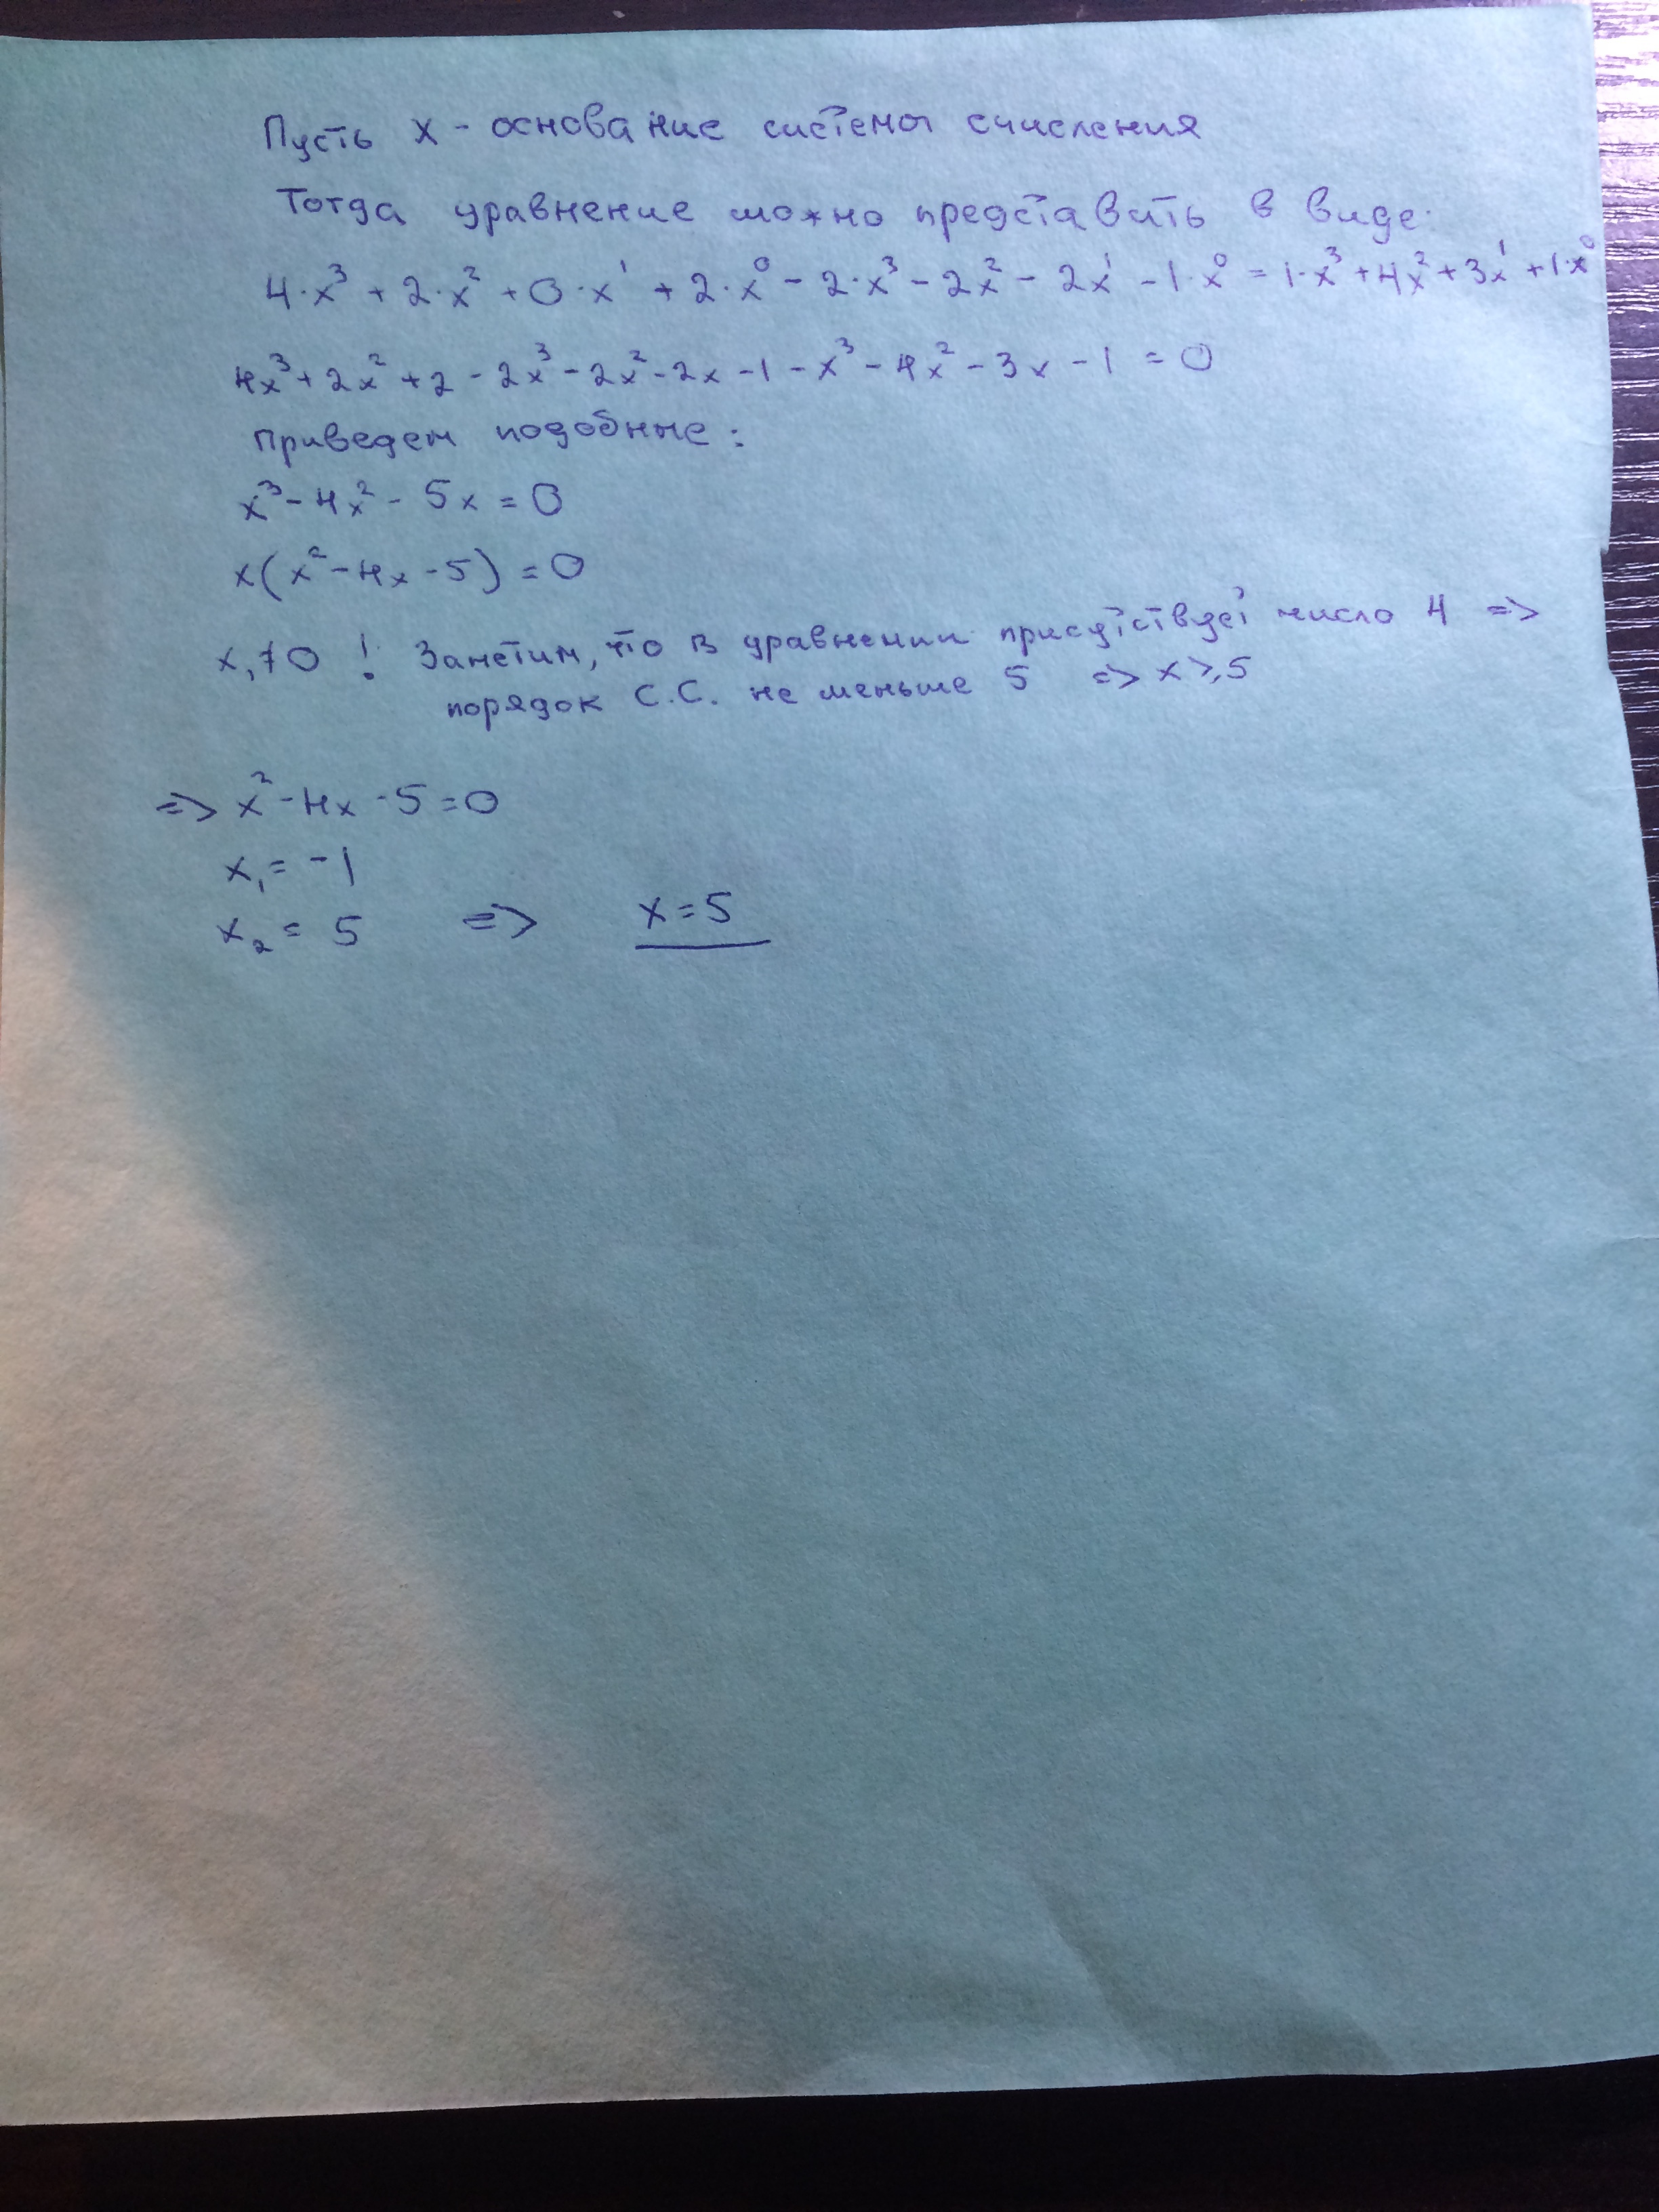 Пусть x - основание системы счисления
Тогда уравнение можно представить в виде:
4·x³ + 2·x² + 0·x¹ + 2·x⁰ - 2·x³ - 2x² - 2x¹ - 1·x⁰ = 1·x³ + 4x² + 3x¹ + 1·x⁰
4x³ + 2x² + 2 - 2x³ - 2x² - 2x - 1 - x³ - 4x² - 3x - 1 = 0
Приведем подобные:
x³ - 4x² - 5x = 0
x(x² - 4x - 5) = 0
x₁ ≠ 0 ! Заметим, что в уравнении присутствует число 4 =>
порядок С.С. не меньше 5 => x ≥ 5
=> x² - 4x - 5 = 0
x₁ = -1
x₂ = 5 => x = 5